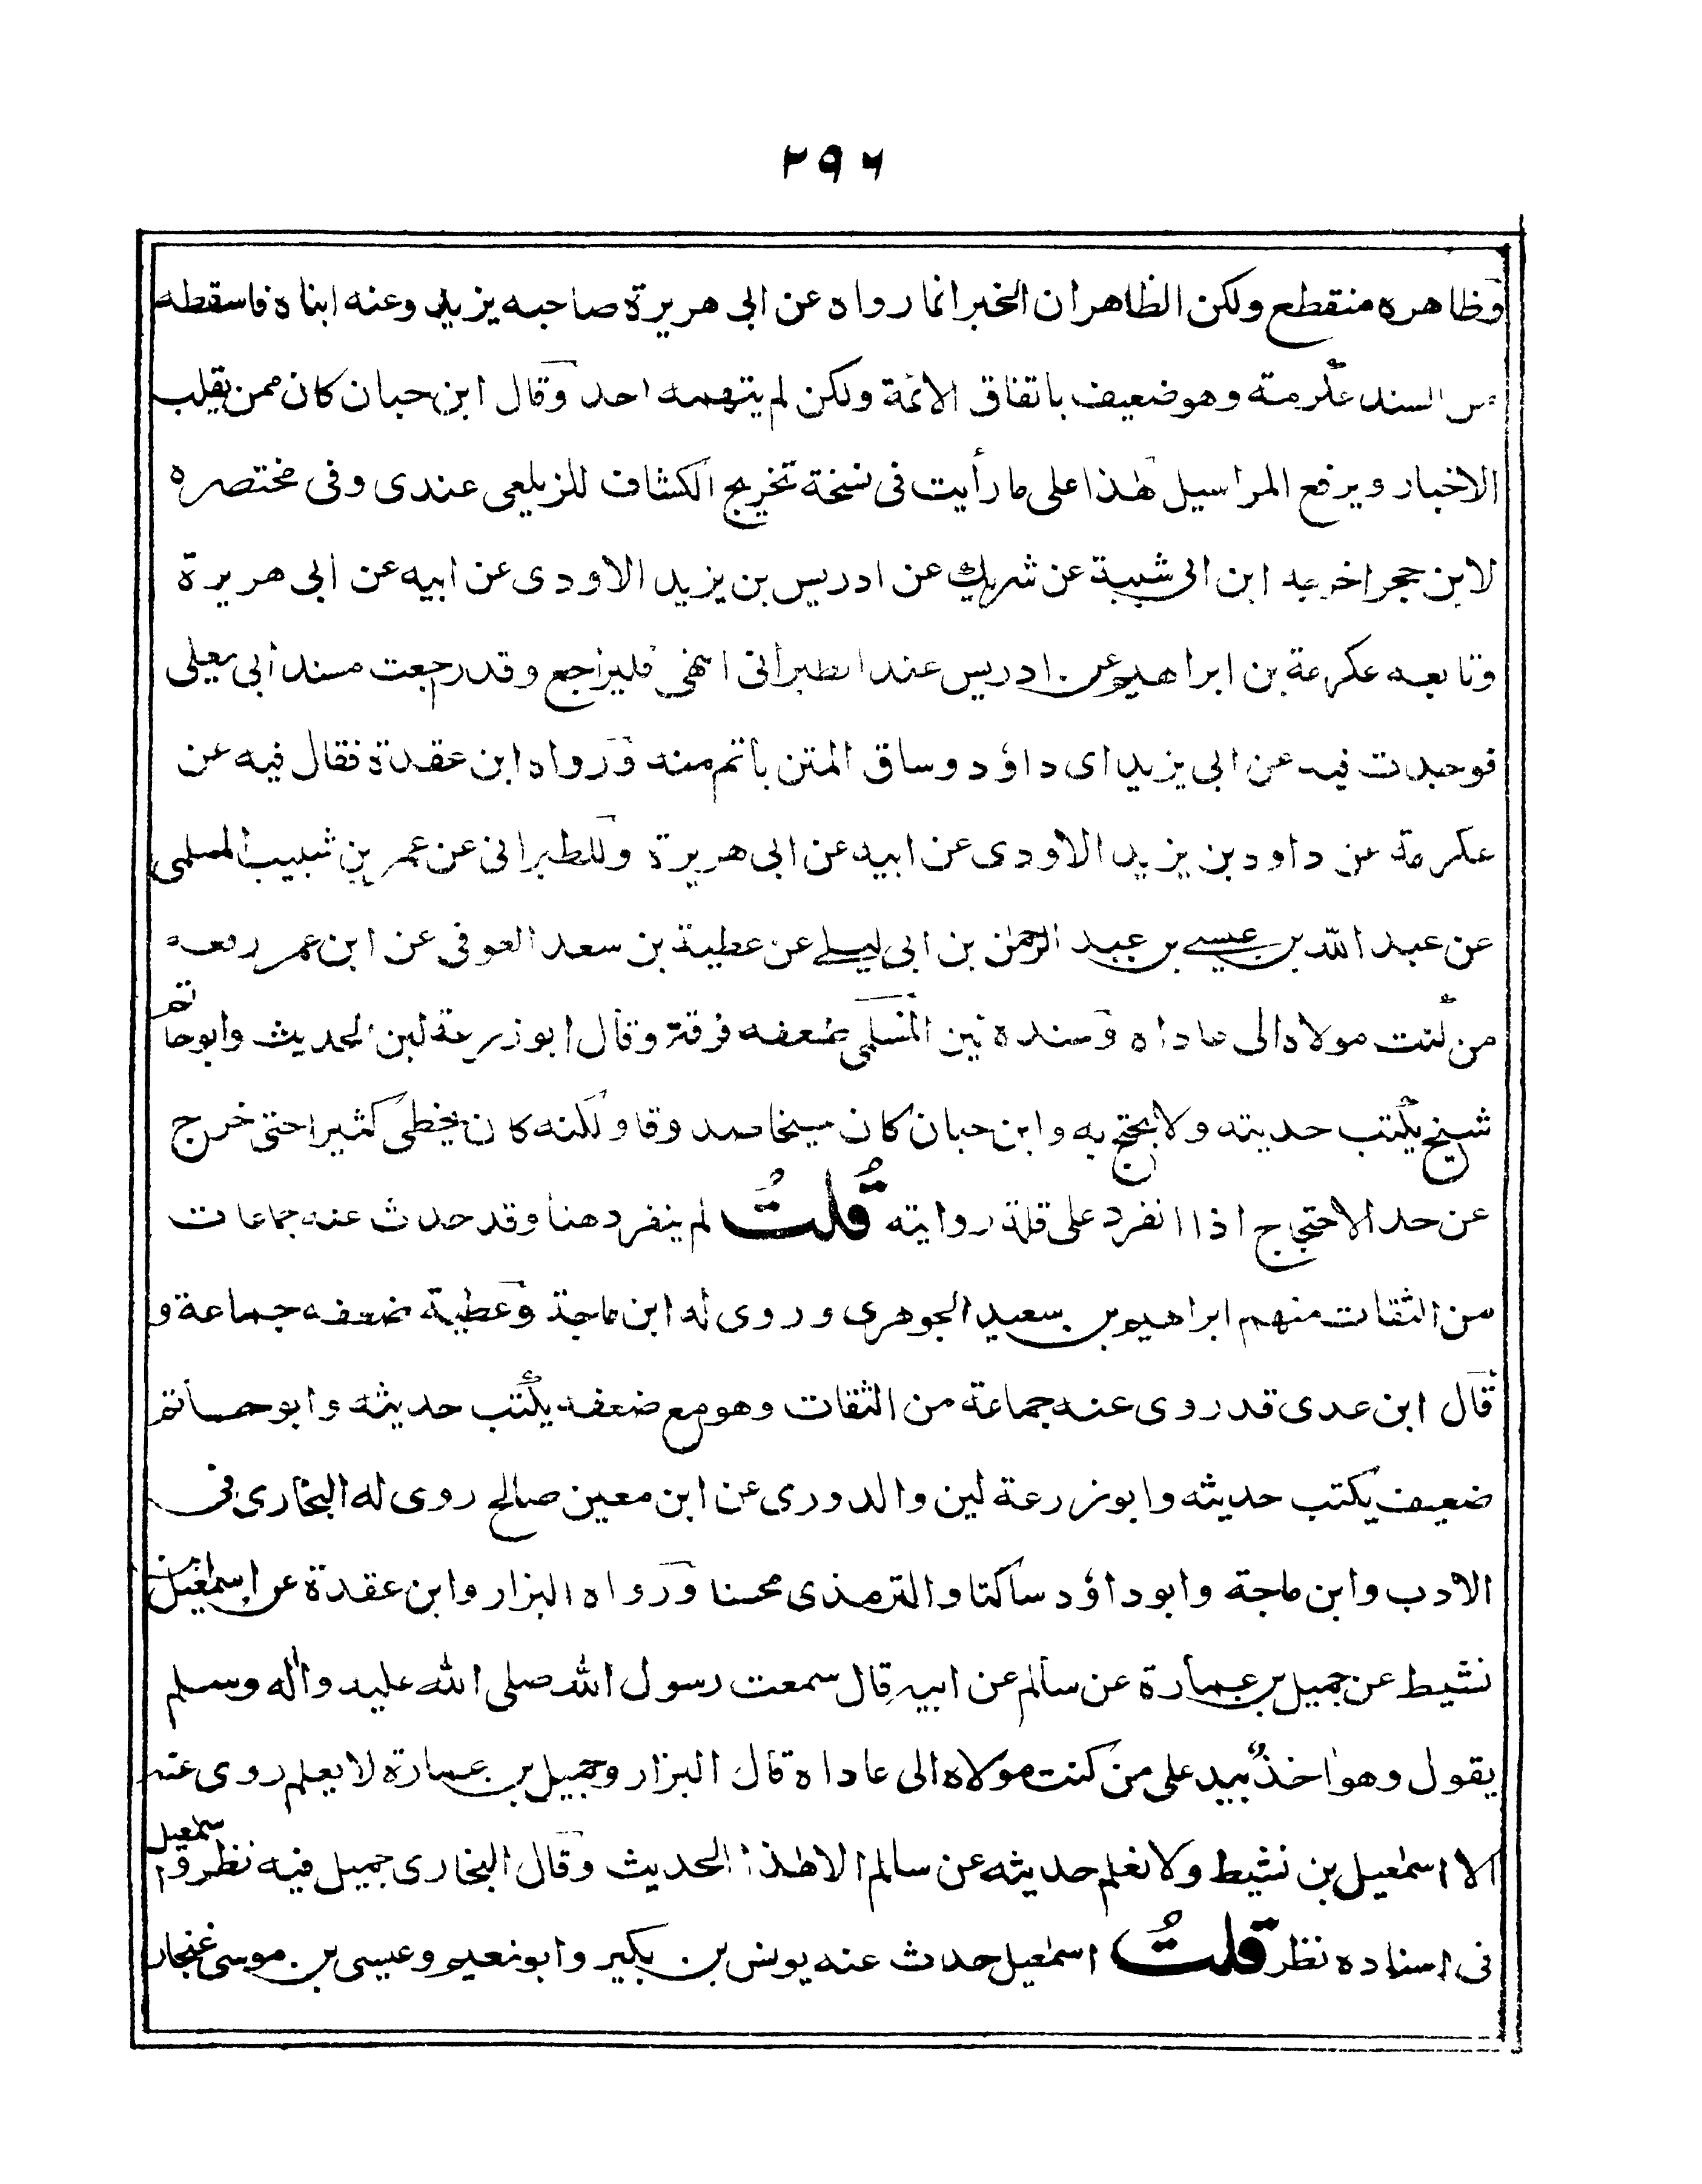 ٢٩٦
وظاهره منقطع ولكن الظاهر ان الخبر انما رواه عن ابى هريرة صاحبه يزيد وعنه ابناه فاسقطه
من السند عكرمة وهو ضعيف باتفاق الائمة ولكن لم يتهمه احد وقال ابن حبان كان ممن يقلب
الاخبار ويرفع المراسيل هذا على ما رأيت فى نسخة تخريج الكشاف للزيلعى عندى وفى مختصره
لابن حجر اخرجه ابن ابى شيبة عن شريك عن ادريس بن يزيد الاودى عن ابيه عن ابى هريرة
وتابعه عكرمة بن ابراهيم عن ادريس عند الطبرانى انتهى فليراجع وقد رجعت مسند أبى يعلى
فوجدت فيه عن ابى يزيد اى داؤد وساق المتن بأتم منه ورواه ابن عقدة فقال فيه عن
عكرمة عن داود بن يزيد الاودى عن ابيه عن ابى هريرة وللطبرانى عن عمر بن شبيب المسلمى
عن عبد الله بن عيسے بن عبد الرحمٰن بن ابى ليلے عن عطية بن سعد العوفى عن ابن عمر رفعه
من كنت مولاه الى عاداه وسنده لين المسلمى ضعفه فرقة وقال ابو زرعة لين الحديث وابو حاتم
شيخ يكتب حديثه ولا يحتج به وابن حبان كان شيخا صدوقا ولكنه كان يخطى كثيرا حتى خرج
عن حد الاحتجاج اذا انفرد على قلة روايته قُلتُ لم ينفرد هنا وقد حدث عنه جماعات
من الثقات منهم ابراهيم بن سعيد الجوهرى وروى له ابن ماجة وعطية ضعفه جماعة و
قال ابن عدى قد روى عنه جماعة من الثقات وهو مع ضعفه يكتب حديثه وابو حاتم
ضعيف يكتب حديثه وابو زرعة لين والدورى عن ابن معين صالح روى له البخارى فى
الادب وابن ماجة وابو داؤد ساكتا والترمذى محسنا ورواه البزار وابن عقدة عن اسمٰعيل بن
نشيط عن جميل بن عمارة عن سالم عن ابيه قال سمعت رسول الله صلى الله عليه واٰله وسلم
يقول وهو اٰخذٌ بيد على من كنت مولاه الى عاداه قال البزار وجميل بن عمارة لا يعلم روى عنه
الا اسمٰعيل بن نشيط ولا نعلم حديثه عن سالم الا هٰذا الحديث وقال البخارى جميل فيه نظر واسمٰعيل
فى اسناده نظر قلتُ اسمٰعيل حدث عنه يونس بن بكير وابو نعيم وعيسى بن موسى غنجار